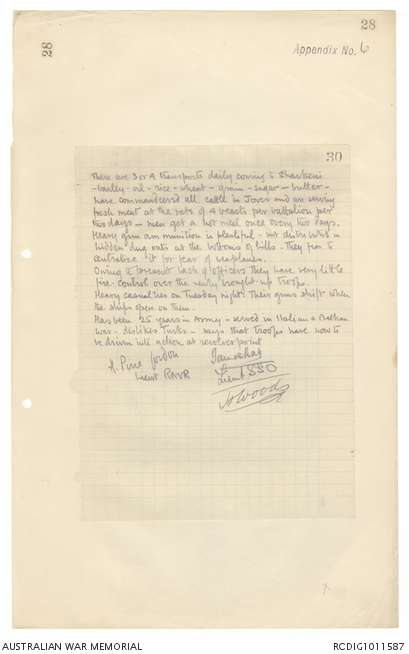 28
28
Appendix No. 6
30
There are 3 or 4 transports daily coming to Sharkeui
-barley-oil-rice-wheat-grain-sugar-butter-
have commandeered all cattle in Town and are serving
fresh meat at the rate of 4 beasts per battalion per
two days - men get a hot meal once every two days
Heavy guns ammunition is plentiful - but distributed in
hidden dug outs at the bottoms of hills - they fear to
centralize it for fear of seaplanes.
Owing to present lack of officers they have very little
fire-control over the newly brought-up troops.
Heavy casualties on Tuesday night. Their guns shift when
the ships open on them.
Has been 25 years in Army - served in Italian & Balkan
War - dislikes Turks - says that Troops have now to
be driven into action at revolver point
A. Pirie Gordon
Lieut RNVR
Lieut
H Wood
AUSTRALIAN WAR MEMORIAL
RCDIG1011587